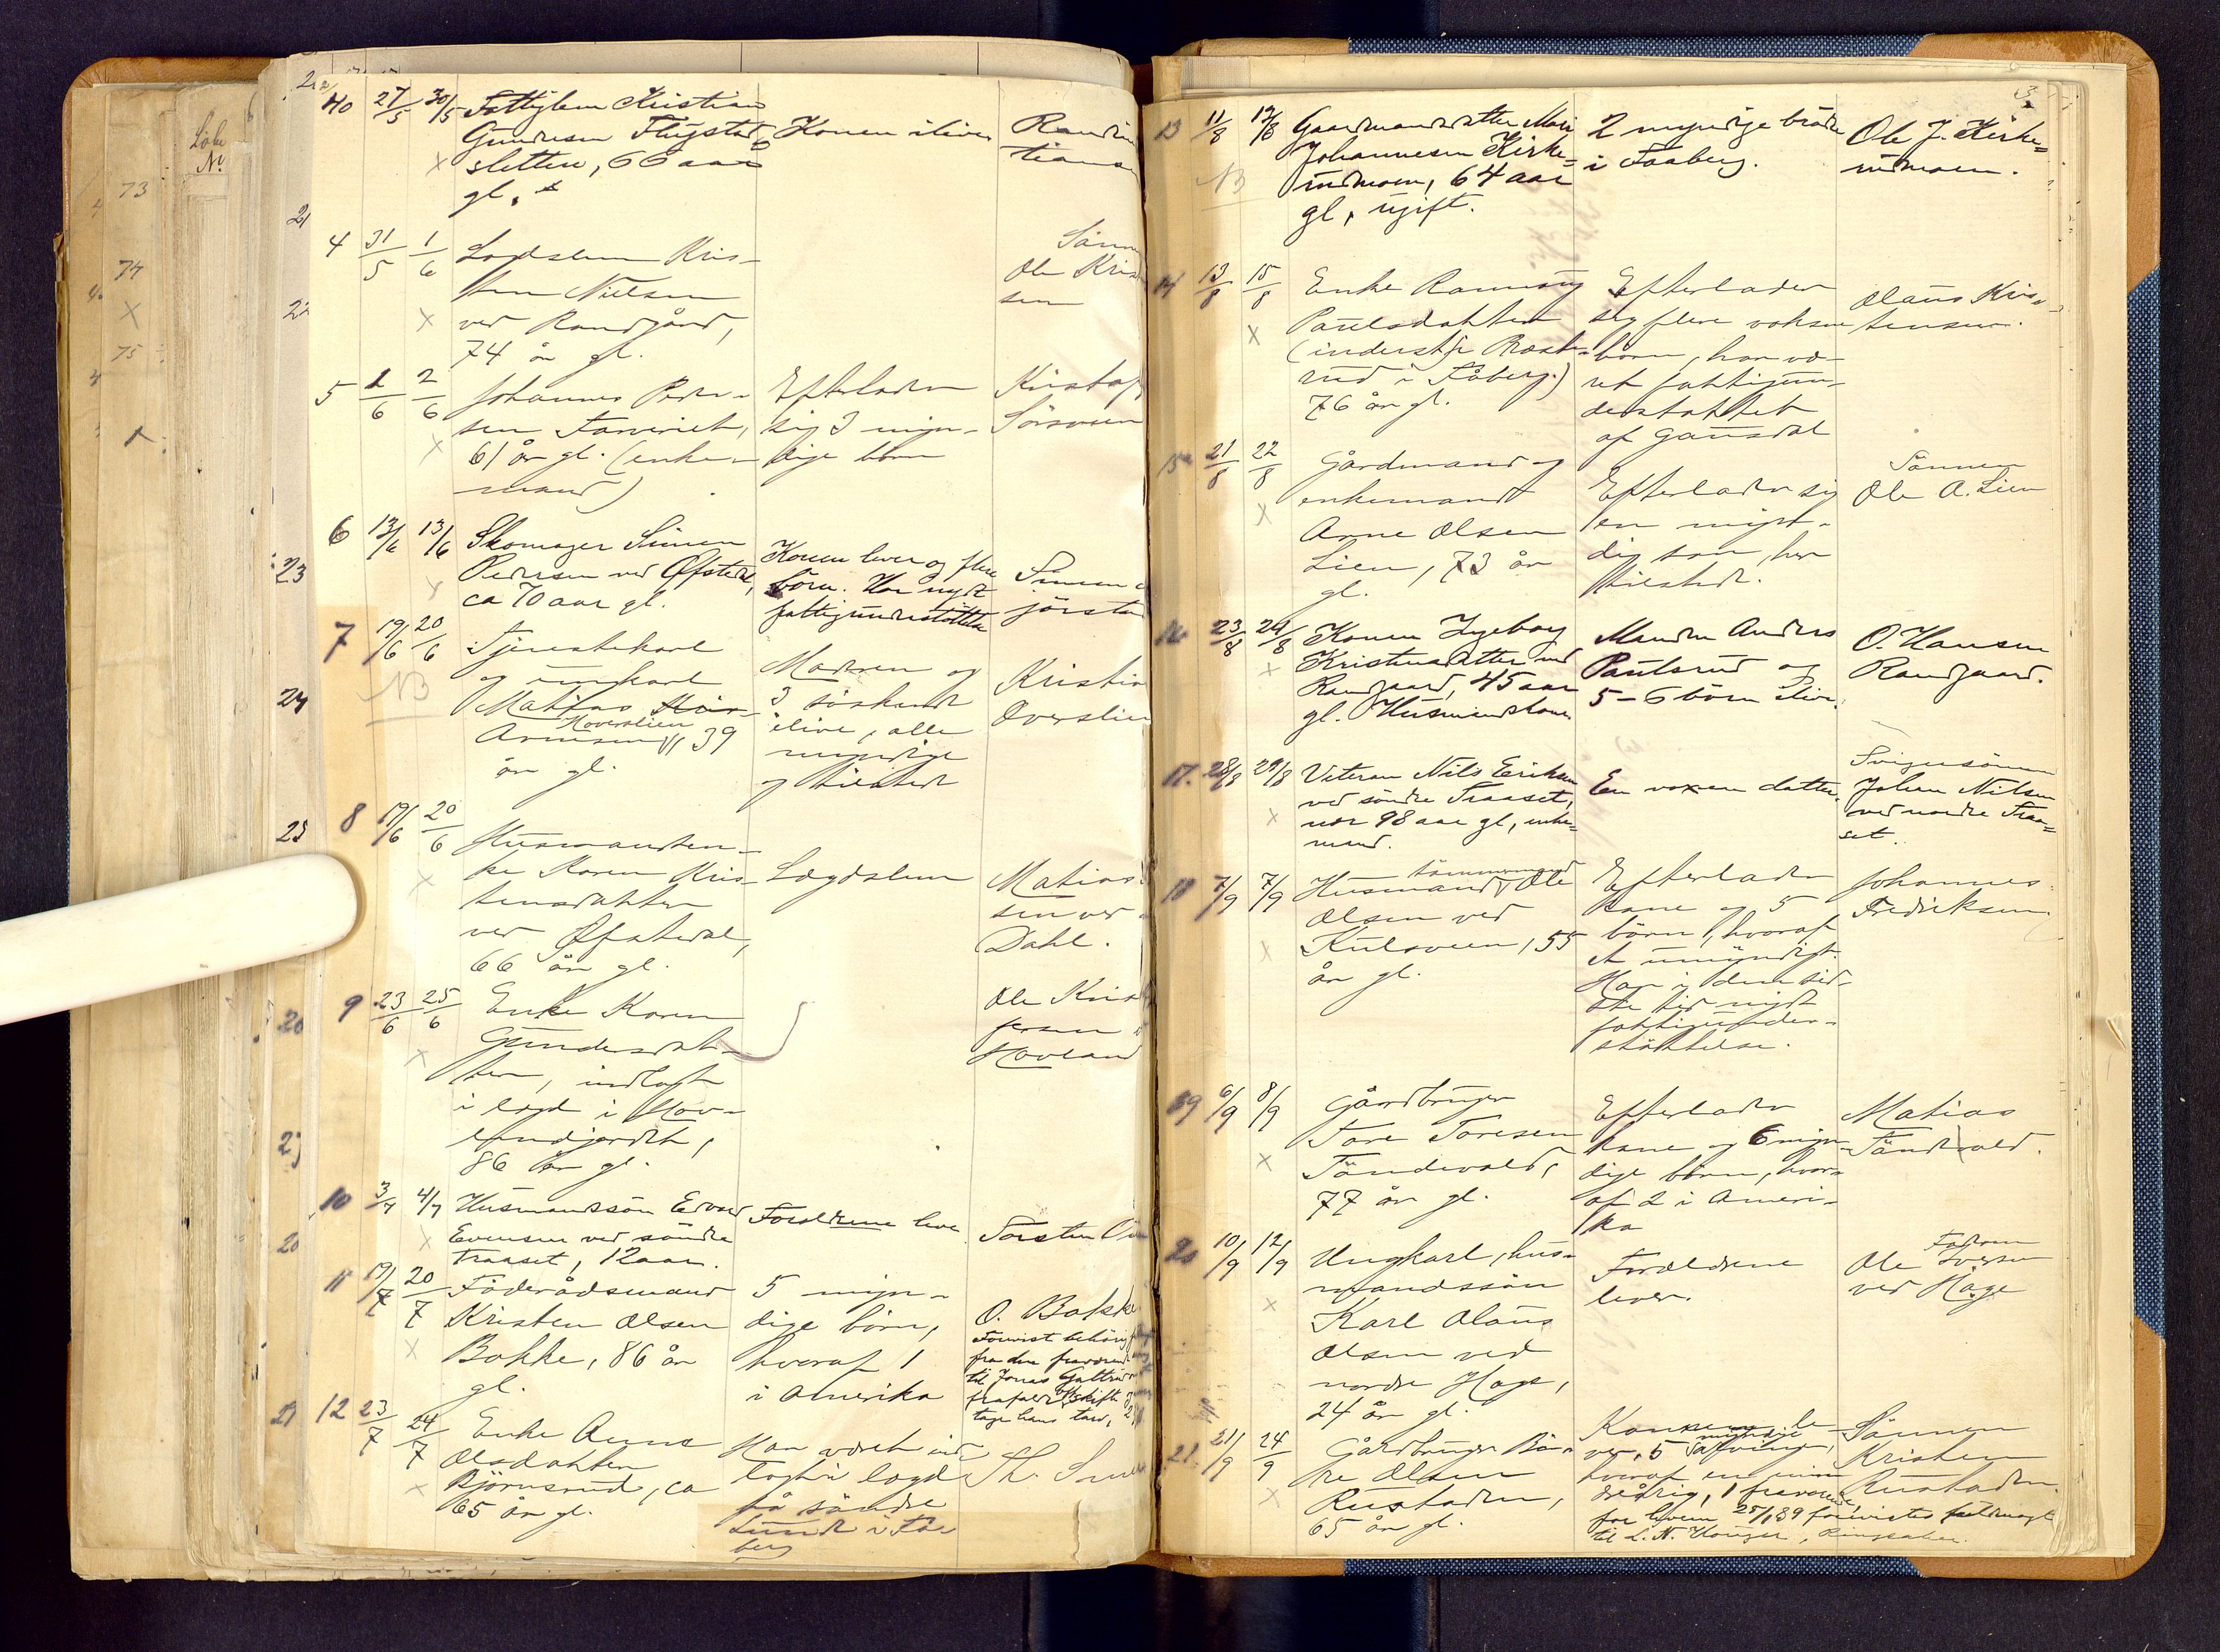 Løbe
No.
73
74
X
75
40 27/5 30/5 Fattiglem Kristian
Gundersen Flugstad
sletten, 66 aar
gl.
Konen ilive
4 31/5 1/6 Lægdslem Kris-
ten Nielsen
ved Randgård,
74 år gl.
Sønnen
Ole Kris
sen
5 1/6 2/6 Johannes Peder-
sen
61 år gl. (enke-
mand)
Efterlader
sig 3 myn-
dige børn
6 13/6 13/6 Skomager Simen
Pedersen ved Øfstedal,
ca 70 aar gl.
Konen lever og flere
børn. Har nydt
fattigunderstøttelse
Simen
jørsta
7 19/6 20/6 Tjenestekarl
og ungkarl
Matias
Arnesen Hoverslien, 39
år gl.
NB
Moderen og
3 søskende
ilive, alle
myndige
og tilstede
Kristia
Overslien
8 19/6 20/6 Husmandsen-
ke Karen Kris-
tensdatter
ved Øfstedal,
66 år gl.
Lægdslem
Matias
sen ved
Dahl.
9 23/6 25/6 Enke Karen
Gundersdat-
ter, indlagt
i lægd i Hov-
landjordet,
86 år gl.
Ole Kris
fersen
Hovland
10 3/7 4/7 Husmandssøn Edvard
Evensen ved søndre
Traaset, 12 aar.
Forældrene leve
Torsten
11 19/7 20/7 Føderådsmand
Kristen Olsen
Bakke, 86 år
gl.
5 myn-
dige børn,
hvoraf 1
i Amerika
O. Bakke
12 23/7 24/7 Enke Anne
Olsdatter
Bjørnsrud, ca
65 år gl.
Har været ind-
lagt i lægd
på søndre
Lunde i Få-
berg
Th.
13 11/8 12/8 Gaardmandsdatter Mari
Johannesen Kirke-
rudmoen, 64 aar
gl, ugift.
NB
2 myndige brødre
i Faaberg.
Ole J. Kirke-
rudmoen.
14 13/8 15/8 Enke Rønnaug
Paulsdatter
(inderst på
rud i Fåberg.)
76 år gl.
Efterlader
sig flere voksne
børn, har væ-
ret fattigun-
derstøttet
af Gausdal
Olaus Kris-
tensen.
15 21/8 22/8 Gårdmand og
enkemand
Arne Olsen
Lien, 73 år
gl.
Efterlader sig
en myn-
dig søn, her
tilstede.
Sønnen
Ole A. Lien
16 23/8 24/8 Konen Ingeborg
Kristensdatter ved
Randgaard, 45 aar
gl. Husmandskone
Manden Anders
Paulsrud og
5-6 børn ilive.
O. Hansen
Randgaard.
17. 28/8 29/8 Veteran Nils Eriksen
ved søndre Traaset,
nær 98 aar gl, enke-
mand.
En voxen datter.
Svigersønnen
Johan Nilsen
ved nordre Traa-
set.
18 7/9 7/9 Husmand, tømmermand Ole
Olsen ved
Kulsveen, 55
år gl.
Efterlader
kone og 5
børn, hvoraf
et umyndigt.
Har i den sid-
ste tid nydt
fattigunder-
støttelse.
Johannes
Fredriksen.
19 6/9 8/9 Gårdbruger
Tore Toresen
Tøndevold,
77 år gl.
Efterlader
kone og 6 myn-
dige børn, hvor-
af 2 i Ameri-
ka
Matias
Tøndevold.
20 10/9 12/9 Ungkarl, hus-
mandssøn
Karl Olaus
Olsen ved
nordre Hage,
24 år gl.
Forældrene
lever.
Faderen
Ole Iversen
ved Hage
21. 21/9 24/9 Gårdbruger Bå-
re Olsen
Rustaden,
65 år gl.
Konen le-
ver, 5 myndige
hvoraf en min-
dreårig, 1 fraværende,
til L. N. Hauger, Ringsaker.
Sønnen
Kristen
Rustaden.